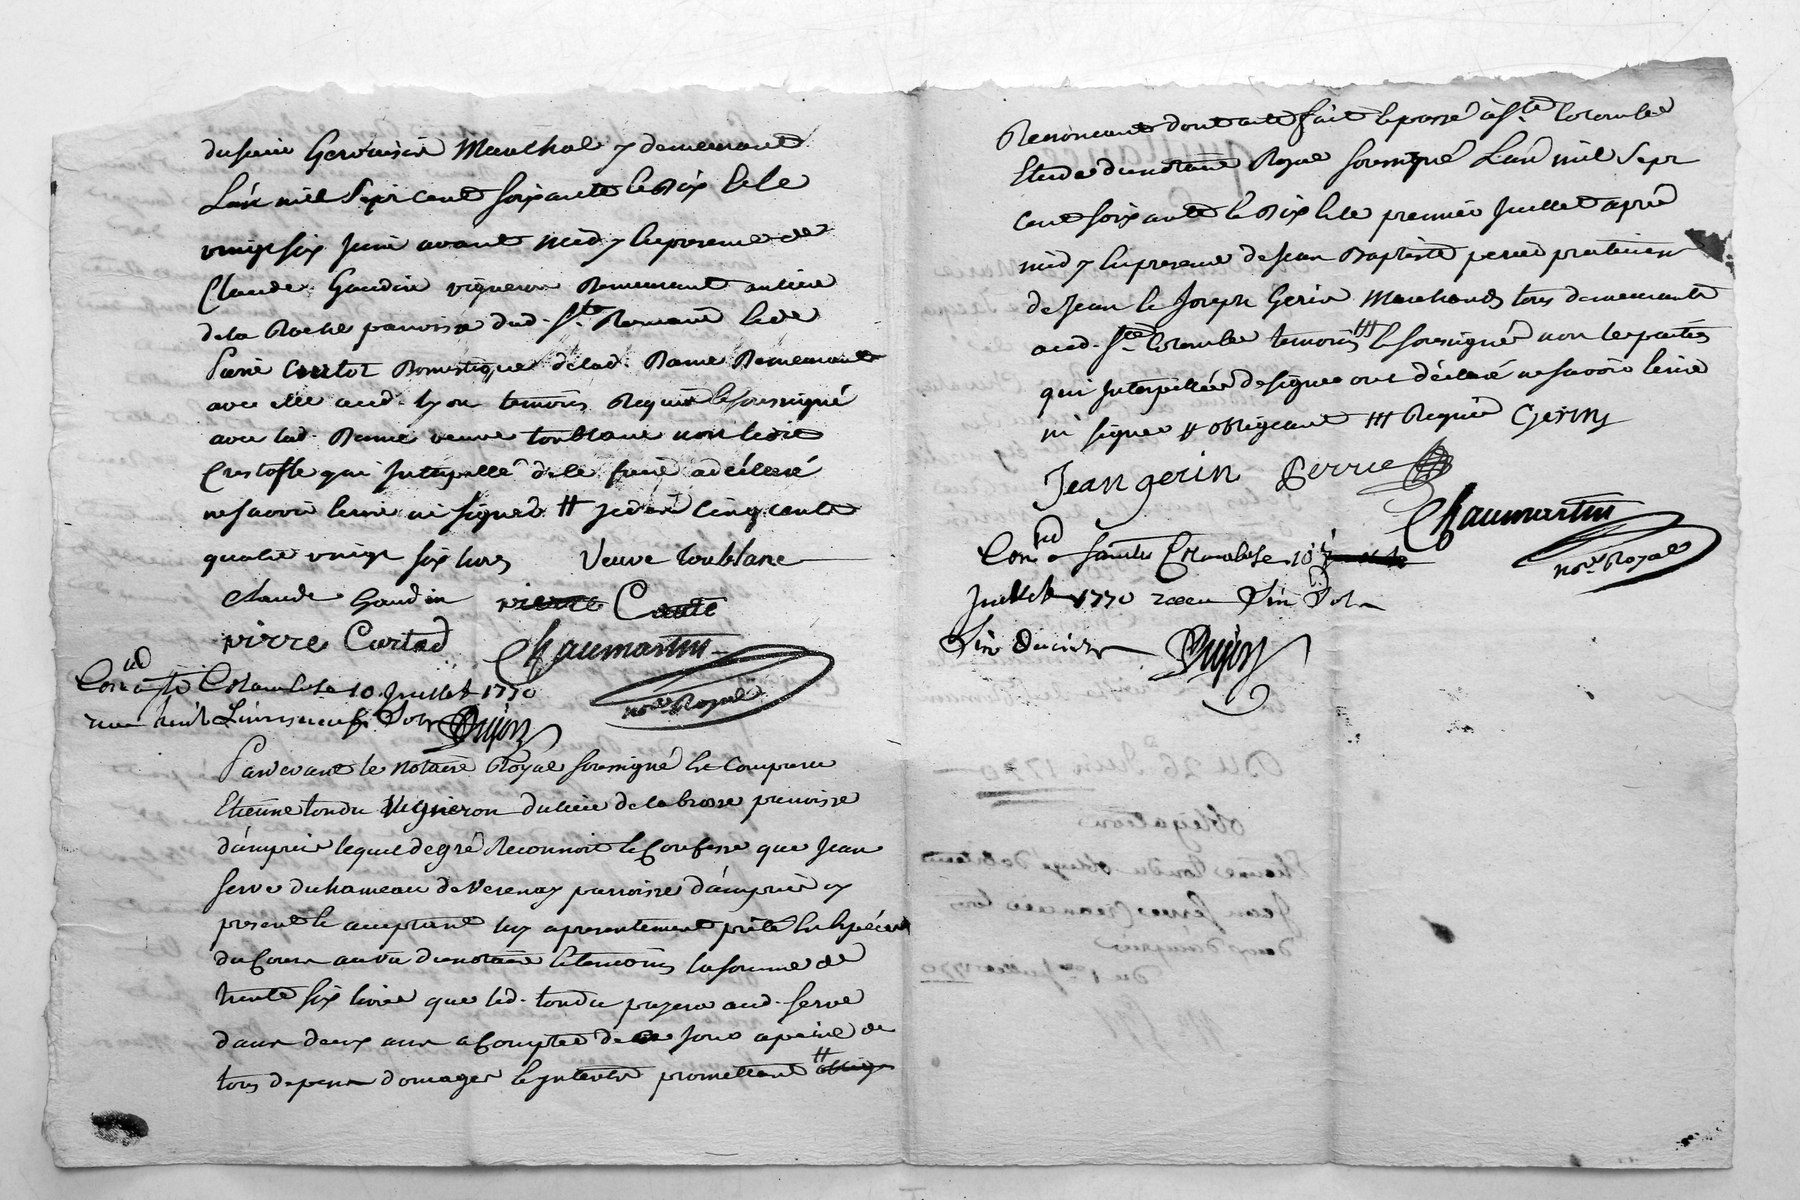 du sieur Gervaisin Marechal y demeurant
L'an mil sept cent soixante & dix & le
vingt six juin avant midy en presence de
Claude Gaudin vigneron demeurant au lieu
de la Roche parroisse dud. Ste Romain & de
Pierre Curtot domestique de lad. Dame demeurante
avec elle aud. Lyon temoins requis & soussigné
avec lad. Dame veuve toublanc non ledit
Cristofle qui interpellé de le faire a déclaré
ne savoir lire ni signer # je dis cinq cents
quatre vingt six livres Veuve toublanc
Claude Gaudin
pierre Curtad Chaumartin
Con^lé a Ste Colombe le 10 Juillet 1770
not^re Royal
Dujon
Pardevant le notaire Royal soussigné est comparu
Etienne tondu vigneron du lieu de la brosse parroisse
d'ampuis lequel de gré reconnoit & confesse que Jean
Serve du hameau de Verenay parroisse d'ampuis cy
present & acceptant luy a presentement prété en espéces
du Cours au vu du notaire & temoins la somme de
trente six livres que led. tondu payera aud. Serve
dans deux ans a compter de ce jour a peine de
tous depens domages & interets promettant #
Renoncant dont acte fait & passé à Ste Colombe
Etude du notaire Royal soussigné L'an mil sept
cent soixante & dix & le premier Juillet aprés
midy en presence de Jean Baptiste perrié praticien
& de Jean & Joseph Gerin Marchands tous demeurants
aud. Ste Colombe temoins ### & soussignés non les parties
qui interpellées de signer ont déclaré ne savoir lire
ni signer # obligeant ### Requis Gerin
Jean gerin Perrie
Chaumartin
not^re Royal
Con^lé a Sainte Colombe le 10
Juillet 1770 recu Six Sols
Six deniers Dujon
Du 26 Juin 1770
Obligation
Du 1er Juillet 1770